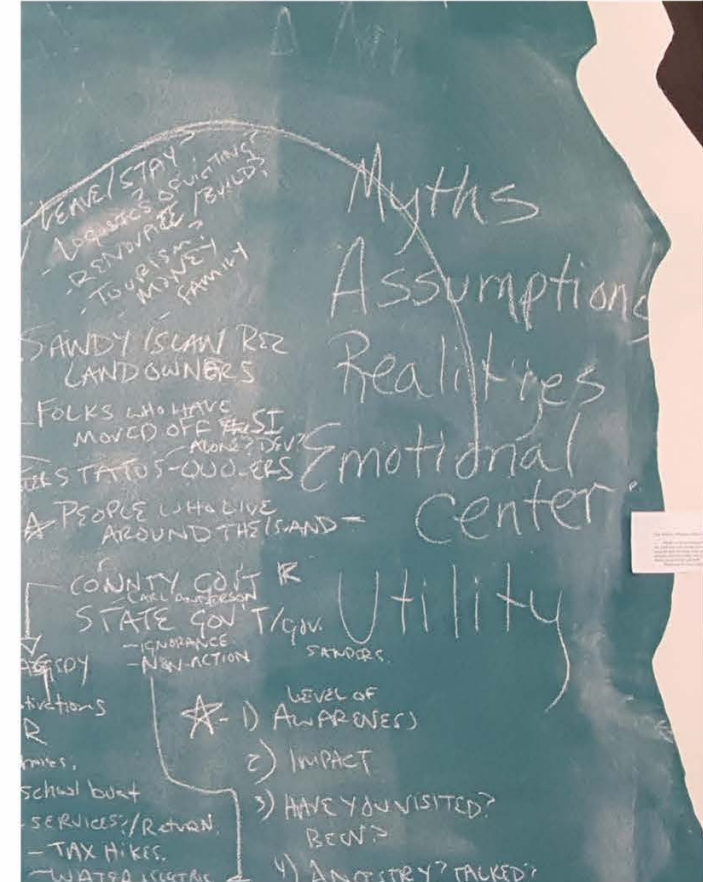 LEAVE/STAY?
- LOGISTICS OF VISITING?
- RENOVATE/BUILD?
- TOURISM?
- MONEY
FAMILY
SANDY ISLAN REZ
LANDOWNERS
FOLKS WHO HAVE
MOVED OFF SI
ALONE? DEV?
STATUS-QUO-ERS
PEOPLE WHO LIVE
AROUND THE ISLAND -
COUNTY GOV'T
CARL ANDERSON
STATE GOV'T/GOV.
SANDERS.
- IGNORANCE
- NON-ACTION
tivations
R
school boat
- SERVICES?/RETURN.
- TAX HIKES.
- WATER
Myths
Assumptions
Realities
Emotional
Center
Utility
1) LEVEL OF
AWARENESS
2) IMPACT
3) HAVE YOU VISITED?
BEEN?
4) ANCESTRY? TALKED?